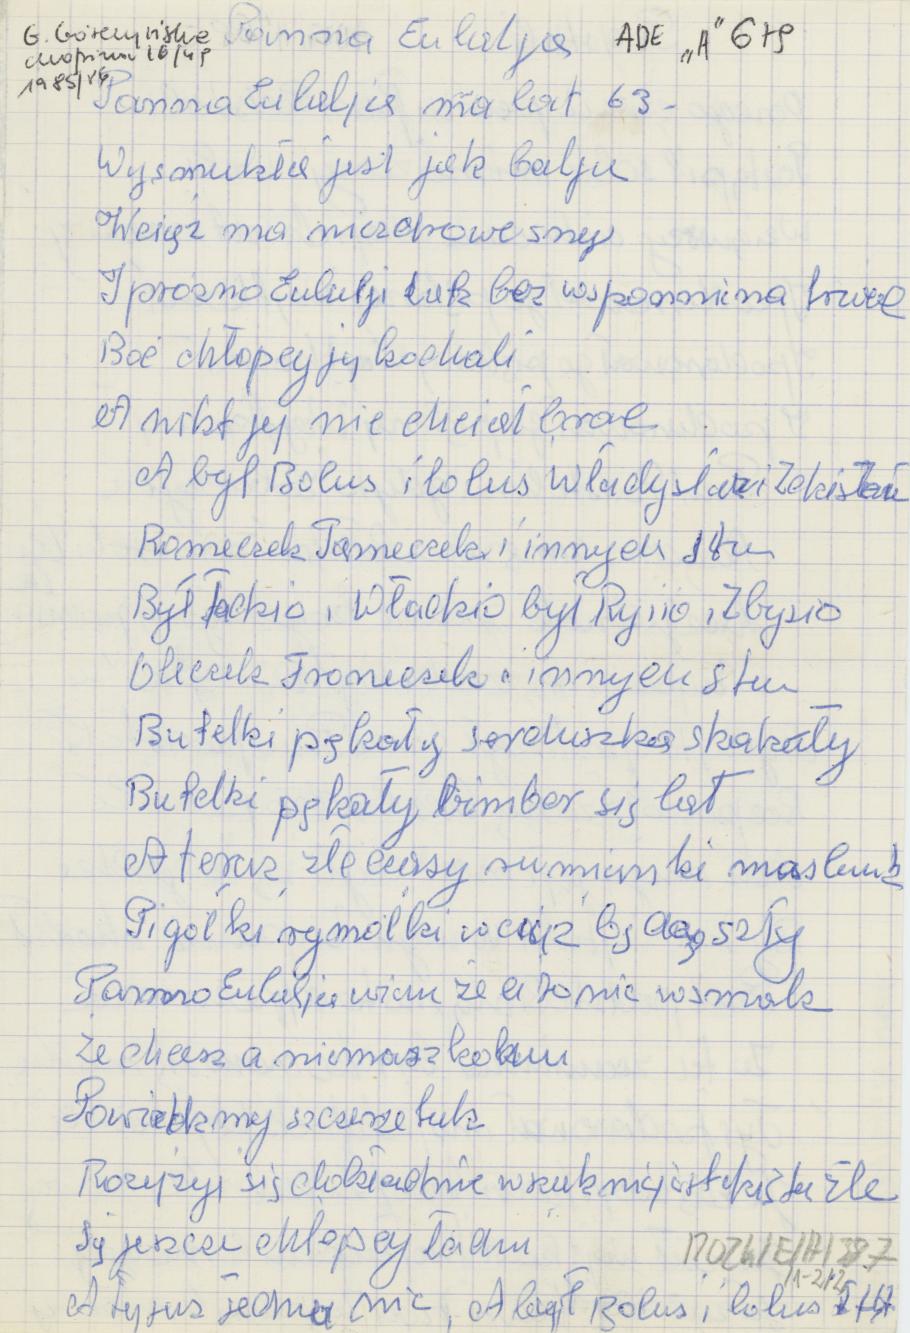 G. Górczyńska
1985/86
Panna Eulalja
ADE "A" 679
Panna Eulalja ma lat 63 -
Wysmukła jest jak balja
Wciąż ma niezdrowe sny
I prózno Eulalji tak bez wspomnina trwać
Boć chłopcy ją kochali
A nikt jej nie chciał brać
A był Boluś i Loluś Władysław i
Romeczek Tomeczek i innych stu
Był Jackio i Władkio był Rysio i Zbysio
Oleczek Franeczek i innych stu
Butelki pękały serduszka skakały
Butelki pękały bimber się lał
A teraz złe czasy rumianki
Pigółki rymółki wciąż będą szły
Panno Eulalja wiem że ci to nie w smak
Że chcesz a niemasz
Powiedzmy szczerze tak
Rozejzyj się dokładnie wszak nie jest tak źle
Są jeszcze chłopcy ładni
A ty już jedną nic, A był Boluś i Loluś itd